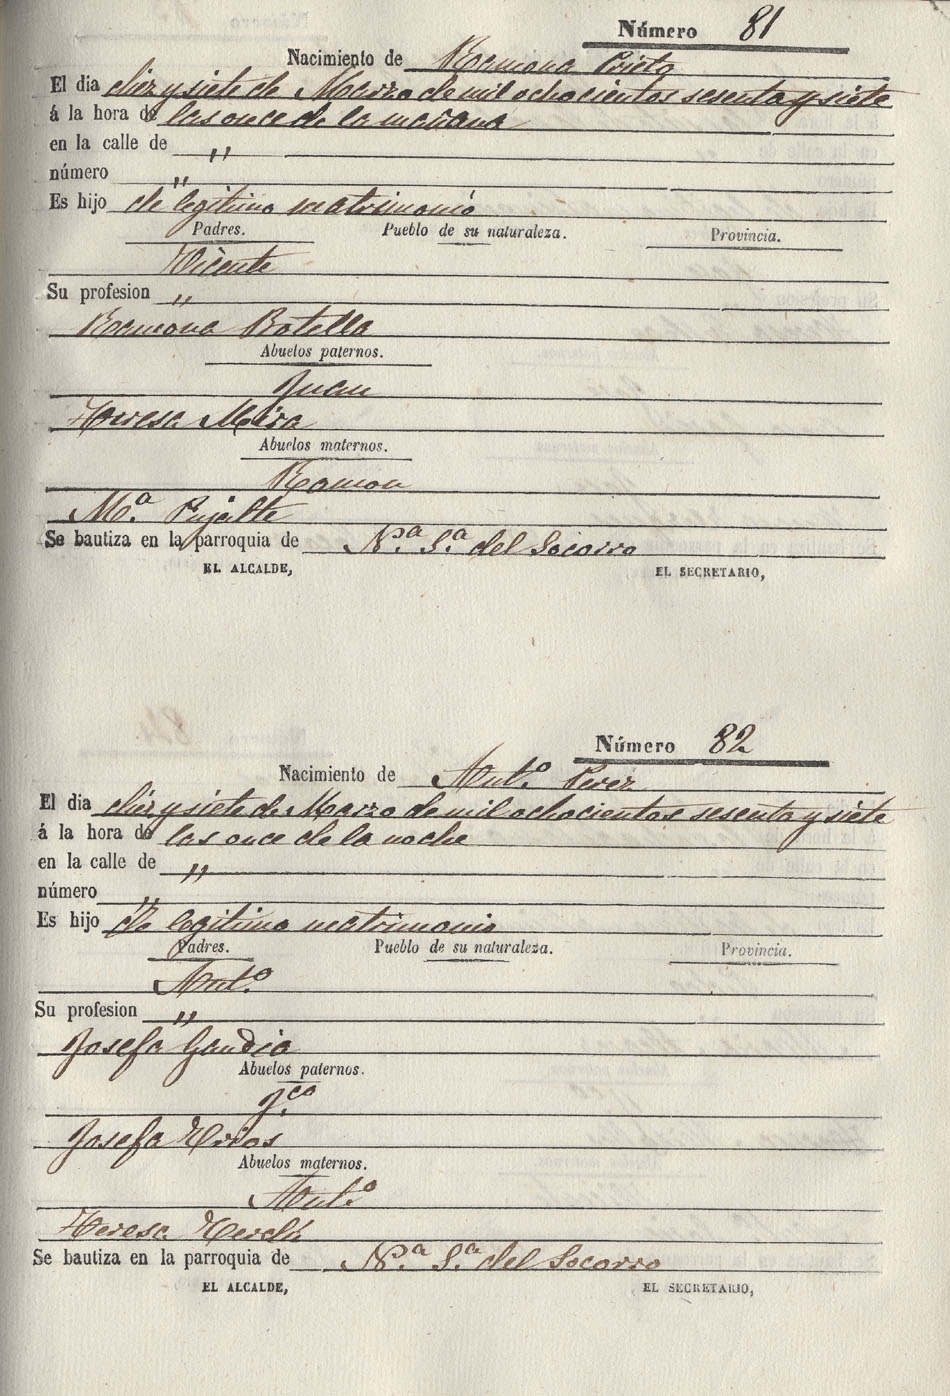 Número 81
Nacimiento de Ramona Prieto
El dia diez y siete de Marzo de mil ochocientos sesenta y siete
á la hora de las once de la mañana
en la calle de "
número "
Es hijo de legitimo matrimonio
Padres. Pueblo de su naturaleza. Provincia.
Vicente
Su profesion "
Ramona Botella
Abuelos paternos.
Juan
Teresa Mira
Abuelos maternos.
Ramon
M.ª Pujalte
Se bautiza en la parroquia de N.ª S.ª del Socorro
EL ALCALDE, EL SECRETARIO,
Número 82
Nacimiento de Ant.º Perez
El dia diez y siete de Marzo de mil ochocientos sesenta y siete
á la hora de las once de la noche
en la calle de "
número "
Es hijo de legitimo matrimonio
Padres. Pueblo de su naturaleza. Provincia.
Ant.º
Su profesion "
Josefa Gandia
Abuelos paternos.
Josefa
Abuelos maternos.
Ant.º
Teresa
Se bautiza en la parroquia de N.ª S.ª del Socorro
EL ALCALDE, EL SECRETARIO,